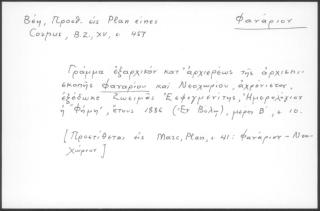 Βέη, Προσθ. εἰς Plan eines
Corpus, B.Z., XV, σ. 457
Φανάριον
Γράμμα ἐξαρχικὸν κατ' ἀρχιερέως τῆς ἀρχιεπι-
σκοπῆς Φαναρίου καὶ Νεοχωρίου, ἀχρόνιστον,
ἐξέδωκε Ζωσιμᾶς Ἐσφιγμενίτης, Ἡμερολόγιον
ἡ "Φήμη", ἔτους 1886 (Ἐν Βόλῳ), μέρος Β', σ. 10.
[Προστίθεται εἰς Marc, Plan, σ. 41: Φανάριον - Νεο-
χώριον]